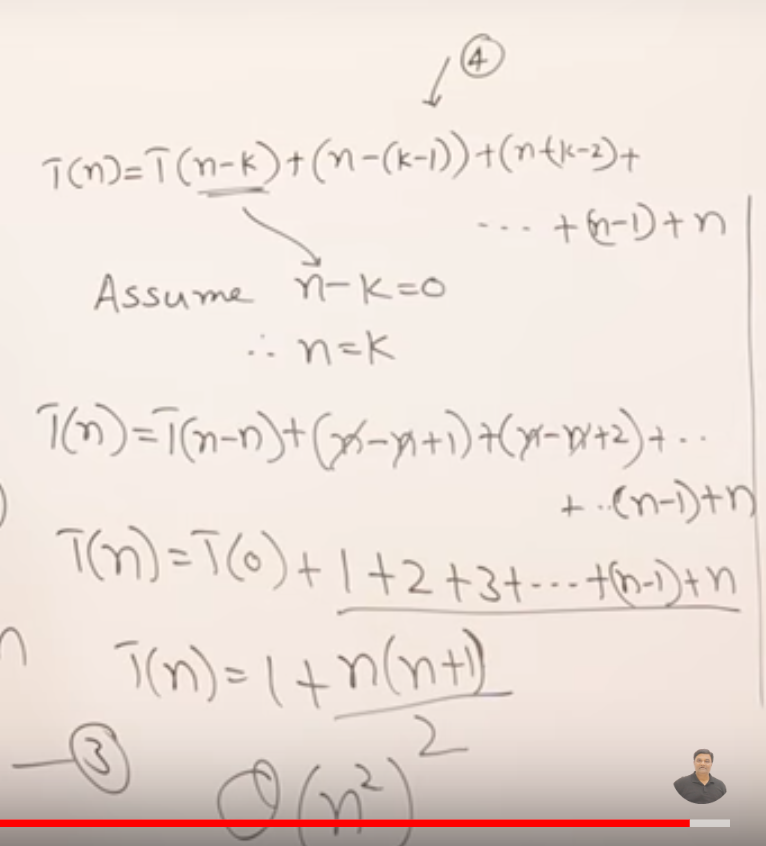 ④
T(n)=T(n-k)+(n-(k-1))+(n-(k-2)+
... +(n-1)+n
Assume n-k=0
∴ n=k
T(n)=T(n-n)+(n-n+1)+(n-n+2)+..
+ ..(n-1)+n
)
T(n)=T(0)+1+2+3+...+(n-1)+n
n
T(n)=1+n(n+1)
2
③
O(n²)